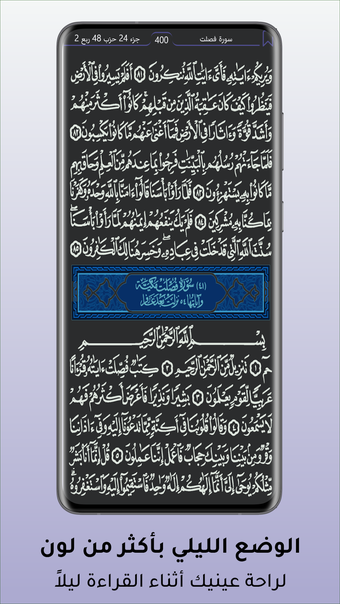 سورة فصلت 400 جزء 24 حزب 48 ربع 2
وَيُرِيكُمْ ءَايَٰتِهِۦ فَأَىَّ ءَايَٰتِ ٱللَّهِ تُنكِرُونَ ٨١ أَفَلَمْ يَسِيرُوا۟ فِى ٱلْأَرْضِ
فَيَنظُرُوا۟ كَيْفَ كَانَ عَٰقِبَةُ ٱلَّذِينَ مِن قَبْلِهِمْ كَانُوٓا۟ أَكْثَرَ مِنْهُمْ
وَأَشَدَّ قُوَّةً وَءَاثَارًا فِى ٱلْأَرْضِ فَمَآ أَغْنَىٰ عَنْهُم مَّا كَانُوا۟ يَكْسِبُونَ ٨٢
فَلَمَّا جَآءَتْهُمْ رُسُلُهُم بِٱلْبَيِّنَٰتِ فَرِحُوا۟ بِمَا عِندَهُم مِّنَ ٱلْعِلْمِ وَحَاقَ بِهِم
مَّا كَانُوا۟ بِهِۦ يَسْتَهْزِءُونَ ٨٣ فَلَمَّا رَأَوْا۟ بَأْسَنَا قَالُوٓا۟ ءَامَنَّا بِٱللَّهِ وَحْدَهُۥ وَكَفَرْنَا
بِمَا كُنَّا بِهِۦ مُشْرِكِينَ ٨٤ فَلَمْ يَكُ يَنفَعُهُمْ إِيمَٰنُهُمْ لَمَّا رَأَوْا۟ بَأْسَنَا
سُنَّتَ ٱللَّهِ ٱلَّتِى قَدْ خَلَتْ فِى عِبَادِهِۦ وَخَسِرَ هُنَالِكَ ٱلْكَٰفِرُونَ ٨٥
(٤١) سورة فصلت مكية
وآياتها ٥٤ نزلت بعد غافر
بِسْمِ ٱللَّهِ ٱلرَّحْمَٰنِ ٱلرَّحِيمِ
حمٓ ١ تَنزِيلٌ مِّنَ ٱلرَّحْمَٰنِ ٱلرَّحِيمِ ٢ كِتَٰبٌ فُصِّلَتْ ءَايَٰتُهُۥ قُرْءَانًا
عَرَبِيًّا لِّقَوْمٍ يَعْلَمُونَ ٣ بَشِيرًا وَنَذِيرًا فَأَعْرَضَ أَكْثَرُهُمْ فَهُمْ
لَا يَسْمَعُونَ ٤ وَقَالُوا۟ قُلُوبُنَا فِىٓ أَكِنَّةٍ مِّمَّا تَدْعُونَآ إِلَيْهِ وَفِىٓ ءَاذَانِنَا
وَقْرٌ وَمِنۢ بَيْنِنَا وَبَيْنِكَ حِجَابٌ فَٱعْمَلْ إِنَّنَا عَٰمِلُونَ ٥ قُلْ إِنَّمَآ أَنَا۠ بَشَرٌ
مِّثْلُكُمْ يُوحَىٰٓ إِلَىَّ أَنَّمَآ إِلَٰهُكُمْ إِلَٰهٌ وَٰحِدٌ فَٱسْتَقِيمُوٓا۟ إِلَيْهِ وَٱسْتَغْفِرُوهُ
الوضع الليلي بأكثر من لون
لراحة عينيك أثناء القراءة ليلاً